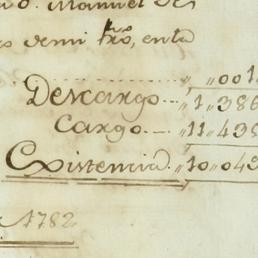 D. Manuel de
demi tro, enta
001
Descargo 1,386
Cargo 11,439
Existencia 10,04
1782